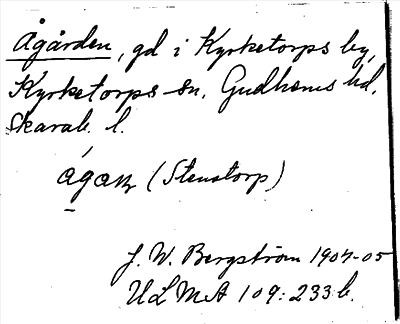 Ågården, gd i Kyrketorps by,
Kyrketorps sn. Gudhems hd.
Skarab. l.
(Stenstorp)
J. W. Bergström 1904-05
ULMA 109:233 b.